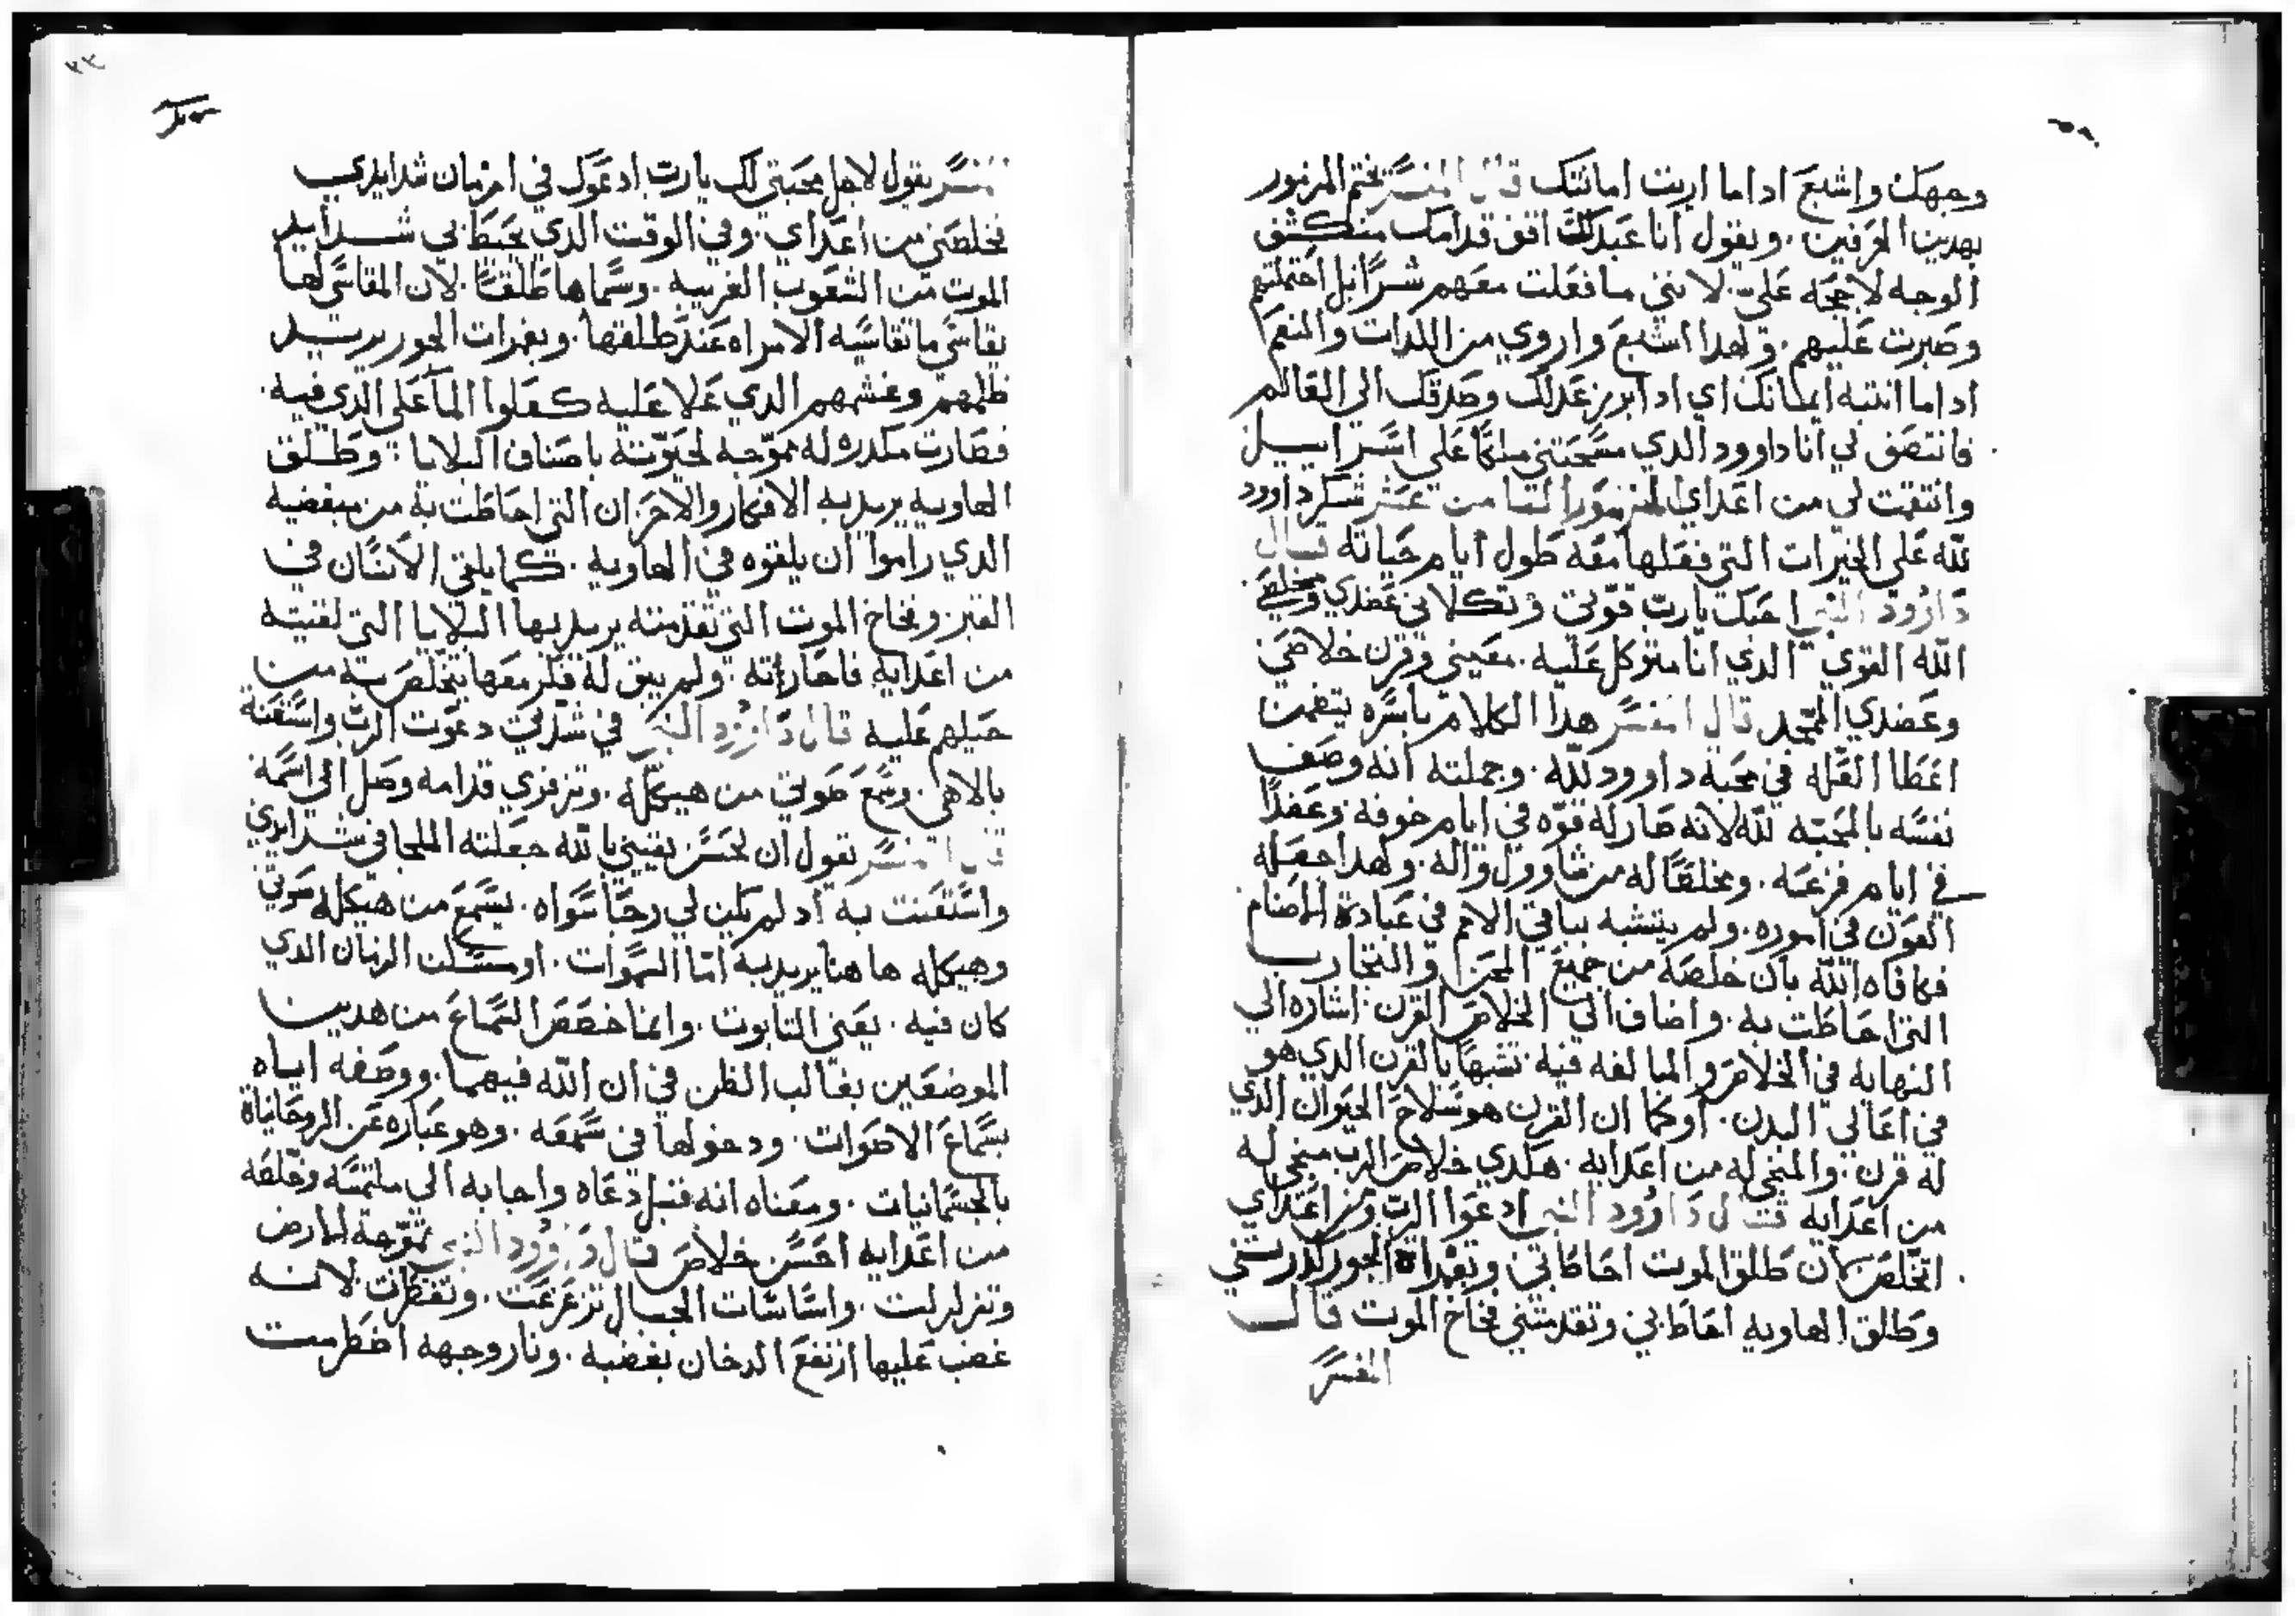 وجهك واشبع اداما اريت امانتك قال المفسر يختم المزمور
بهدين الحرفين . ويقول انا عبدك اقف قدامك منكشف
الوجه لا حجه علي . لانني ما فعلت معهم شرا بل احتملتهم
وصبرت عليهم . ولهدا اشبع واروي من اللدات والنعم
اداما انتبه ايمانك اي ادا ابرز عدلك وصدقك الى العالم
فانتصف لي انا داوود الدي مسحتني ملكا على اسراييل
وانتقمت لي من اعداي المزمور التامن عشر شكر داوود
لله على الخيرات التي فعلها معه طول ايام حياته قال
داوود النبي احبك يارب قوتي وتكلاني عضدي ومخلصي
الله القوي الدي انا متوكل عليه . معيني وقرن خلاصي
وعضدي الممجد قال المفسر هدا الكلام باسره يتضمن
اعطا العله في محبة داوود لله . وجملته انه وصف
نفسه بالمحبه لله لانه صار له قوه في ايام خوفه وعضدا
في ايام فزعه . ومخلصا له من شاوول واله . ولهدا جعله
العون في اموره . ولم يتشبه بباقي الامم في عبادة الاصنام
فكافاه الله بان خلصه من جميع المحن والتجارب
التي احاطت به . واضاف الى الخلاص القرن اشاره الي
النهايه في الخلاص والمبالغه فيه تشبها بالقرن الدي هو
في اعالي البدن . اوكما ان القرن هو سلاح الحيوان الدي
له قرن . والمنجي له من اعدايه . هكدي خلاص الرب منجي له
من اعدايه قال داوود النبي ادعوا الرب ومن اعداي
اتخلص لان طلق الموت احاطاتي وبغراة الجور كدرتني
وطلق الهاويه احاط بي وتقدمتني فخاخ الموت قال
المفسر
المفسر يقول لاجل محبتي لك يارب ادعوك في ازمان شدايدي
فخلصني من اعداي . وفي الوقت الدي يحيط بي شدايد
الموت من الشعوب الغريبه . وسماها طلقا . لان المقاسي لها
يقاسي ما تقاسيه الامراه عند طلقها . وبغرات الجور يريد
ظلمهم وغشمهم الدي علا عليه كعلوا الما على الدي فيه .
فصارت مكدره له مموجه لحيوته باصناف البلايا . وطلق
الهاويه يريد به الافكار والاحزان التي احاطت به من مبغضيه
الدي راموا ان يلقوه في الهاويه . كما يلقى الانسان في
القبر وفخاخ الموت التي تقدمته يريد بها البلايا التي لقيته
من اعدايه فاحارته . ولم يبق له فكر معها يتخلص به من
حيلهم عليه قال داوود النبي في شدتي دعوت الرب واستغنة
بالاهي . وسمع صوتي من هيكله . وتزفزي قدامه وصل الى اسمه
قال المفسر يقول ان لحسن يقيني بالله جعلته الملجا في شدايدي
واستغنت به اد لم يكن لي رجا سواه . يسمع من هيكله صوتي
وهيكله ها هنا يريد به اما السموات . او مسكن الزمان الدي
كان فيه . يعني التابوت . وانما خصص السماع من هدين
الموضعين بغالب الظن في ان الله فيهما . ووصفه اياه
بسماع الاصوات . ودخولها في سمعه . وهو عباره عن الروحانياة
بالجسمانيات . ومعناه انه قبل دعاه واجابه الي ملتمسه وخلصه
من اعدايه احسن خلاص قال داوود النبي تموجة الارض
وتزلزلت . واساسات الجبال تزعزعت . وتفطرت لانه
غضب عليها ارتفع الدخان بغضبه . ونار وجهه اضطرمت